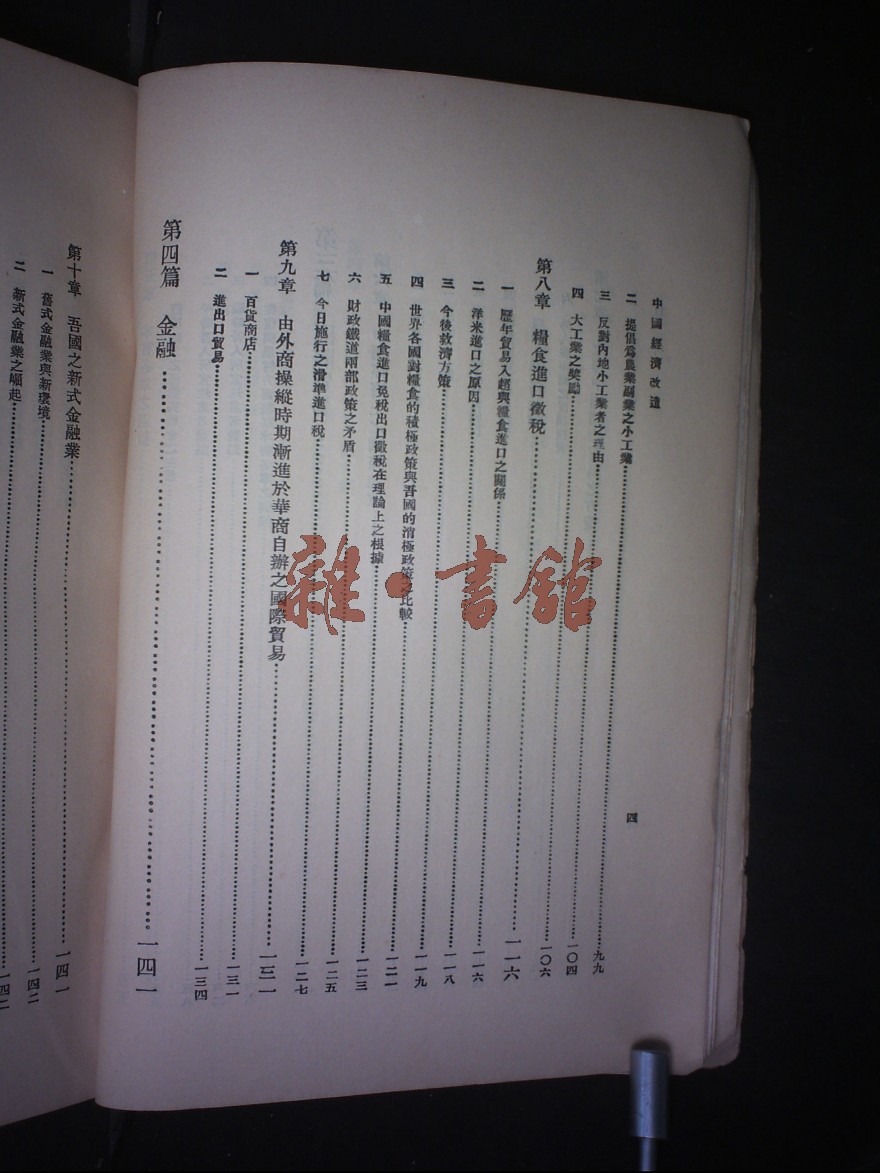 中國經濟改造 四
二 提倡爲農業副業之小工業……九九
三 反對內地小工業者之理由……一〇四
四 大工業之獎勵……一〇六
第八章 糧食進口徵稅……一一六
一 歷年貿易入超與糧食進口之關係……一一六
二 洋米進口之原因……一一八
三 今後救濟方策……一一九
四 世界各國對糧食的積極政策與吾國的消極政策之比較……一二一
五 中國糧食進口免稅出口徵稅在理論上之根據……一二三
六 財政鐵道兩部政策之矛盾……一二五
七 今日施行之滑準進口稅……一二七
第九章 由外商操縱時期漸進於華商自辦之國際貿易……一三一
一 百貨商店……一三一
二 進出口貿易……一三四
第四篇 金融……一四一
第十章 吾國之新式金融業……一四一
一 舊式金融業與新環境……一四二
二 新式金融業之崛起……一四二
雜·書館